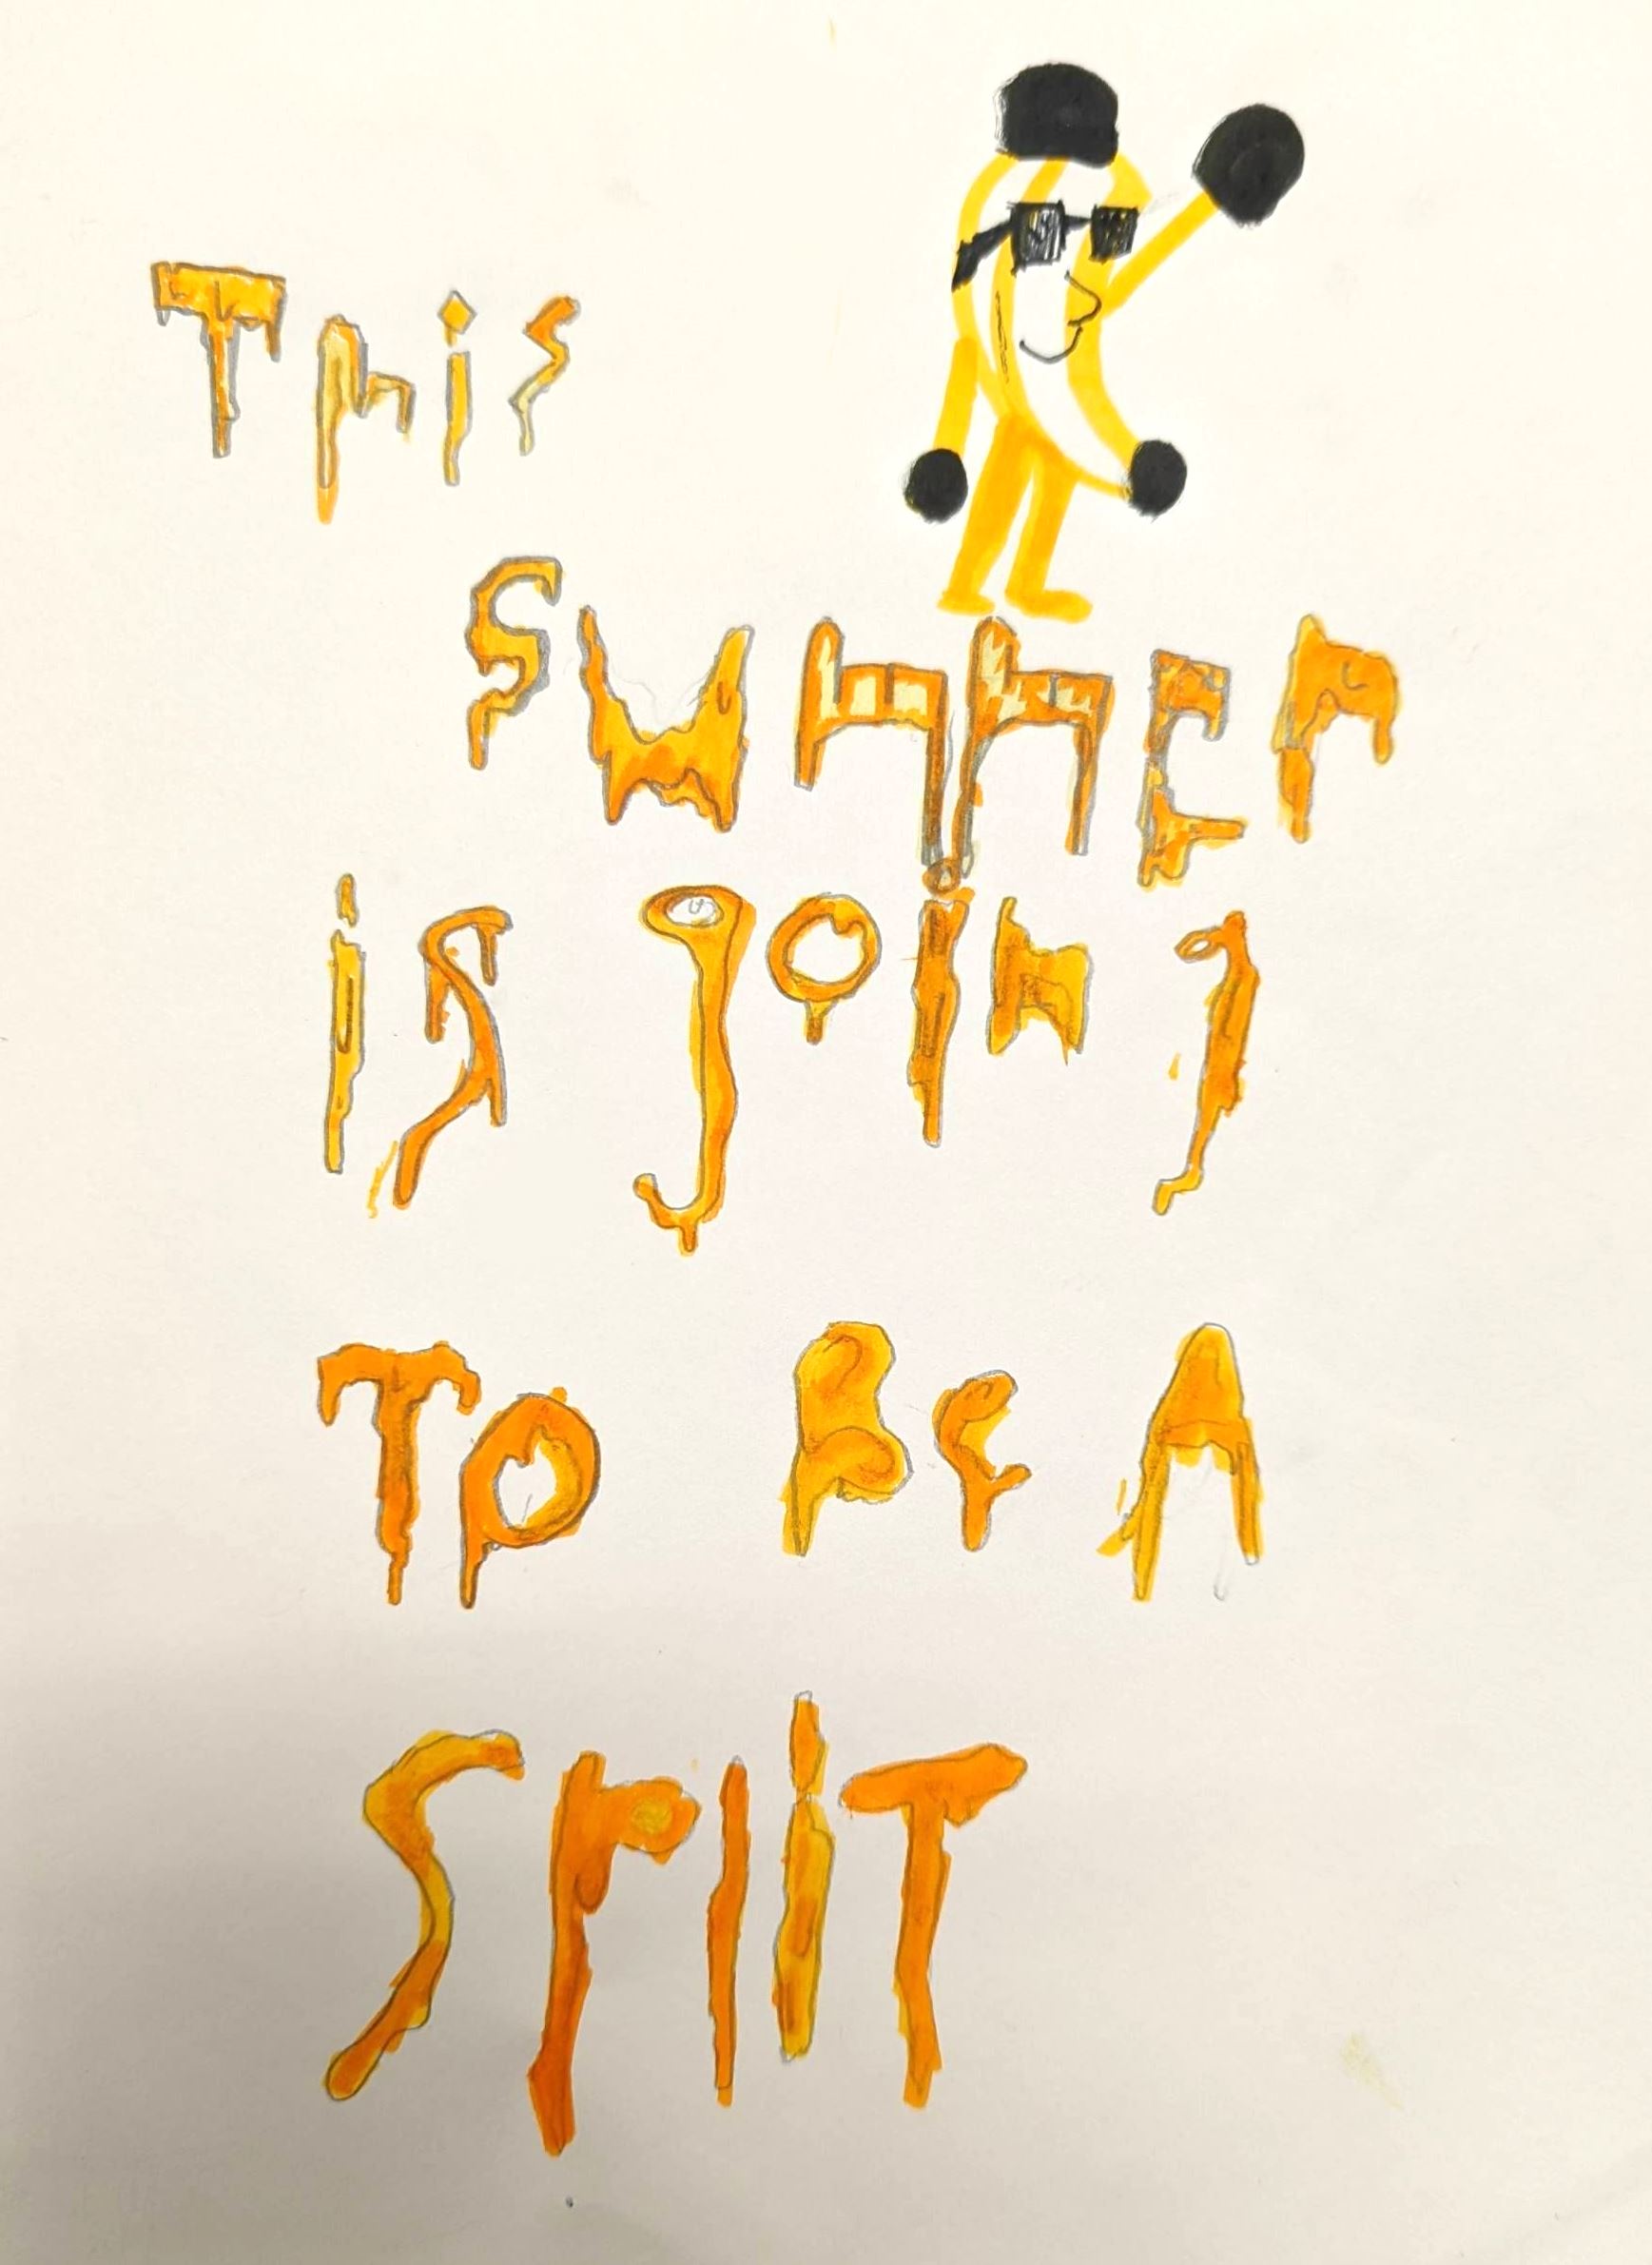 This
summer
is going
To Be A
Split